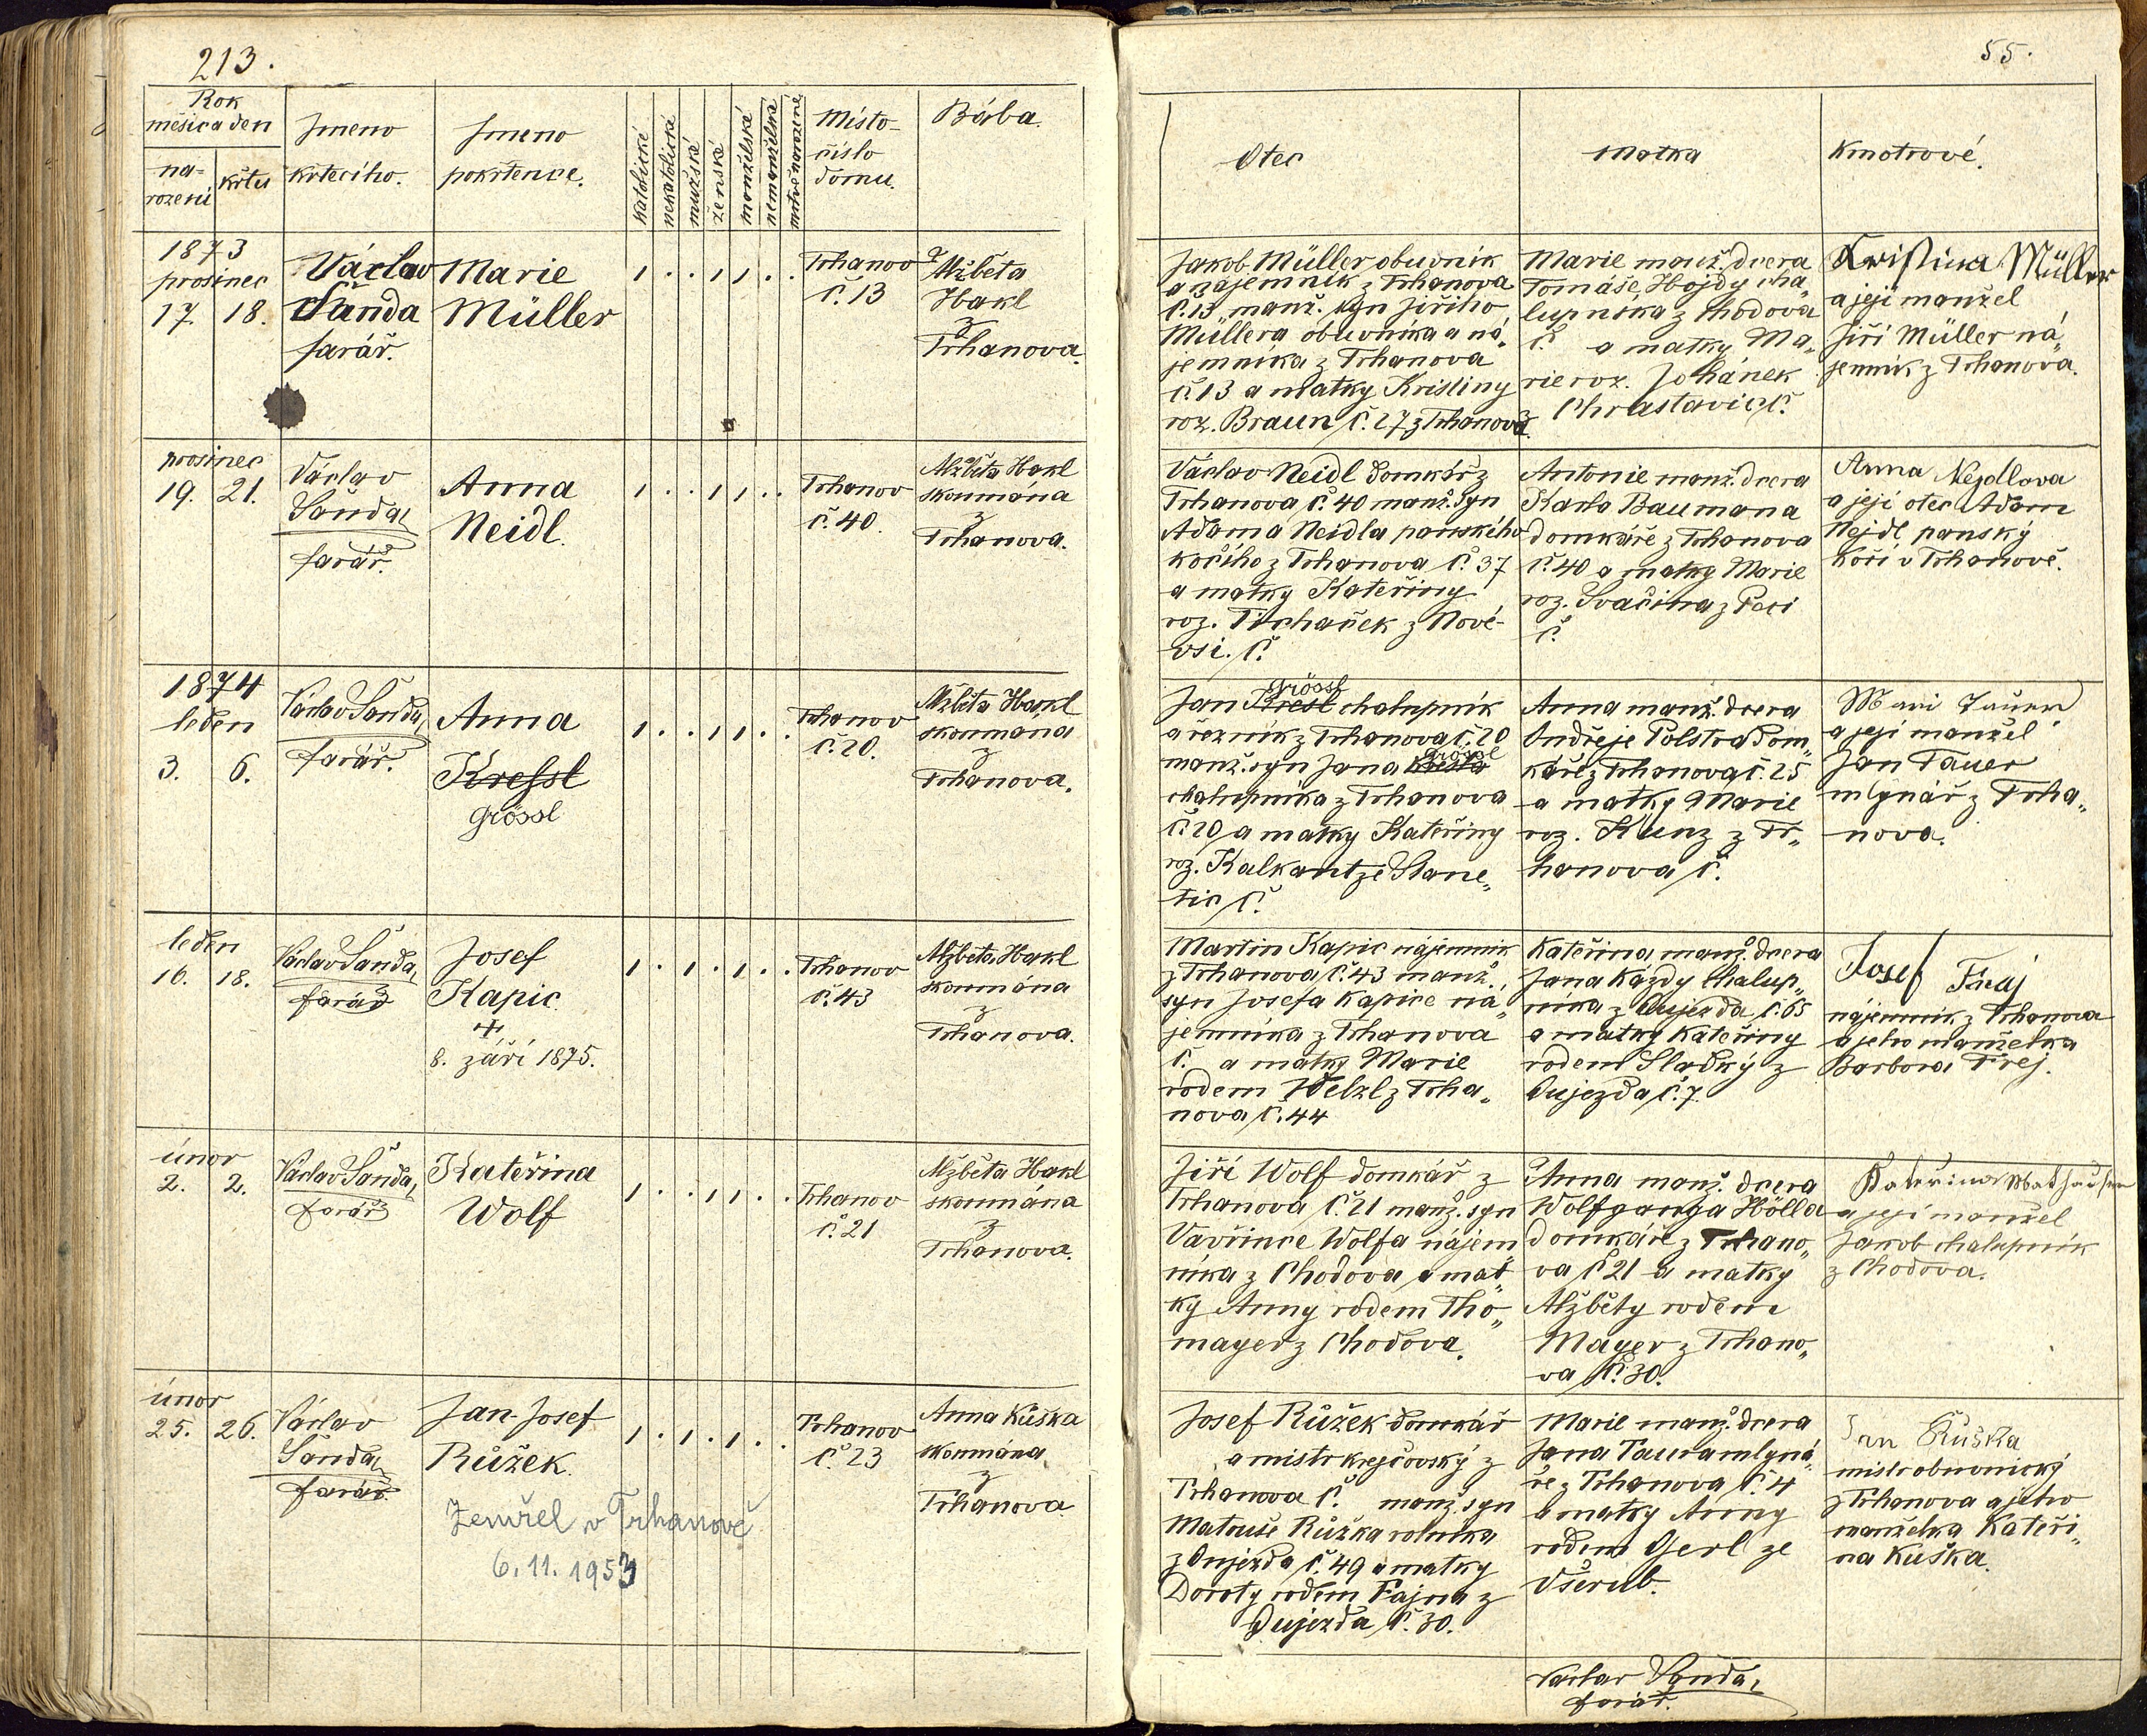 213.
Rok
měsíc a den
na-
rození
křtu
Jmeno
křtícího.
Jmeno
pokřtence.
katolické
nekatolické
mužské
ženské
manželské
nemanželské
mrtvě narozené
Místo-
číslo
domu.
Bába.
1873
prosinec
17. 18.
Václav
Šanda
farář.
Marie
Müller
1 . . 1 1 . .
Trhanov
č. 13
Alžběta
Hakl
z
Trhanova.
prosinec
19. 21.
Václav
Šanda,
farář.
Anna
Neidl.
1 . . 1 1 . .
Trhanov
č. 40.
Alžběta Hakl
zkoumána
z
Trhanova.
1874
leden
3. 6.
Václav Šanda,
farář.
Anna
Kressl
Grössl
1 . . 1 1 . .
Trhanov
č. 20.
Alžběta Hakl
zkoumána
z
Trhanova.
leden
16. 18.
Václav Šanda,
farář
Josef
Kapic
+
8. září 1875.
1 . 1 . 1 . .
Trhanov
č. 43
Alžběta Hakl
zkoumána
z
Trhanova.
únor
2. 2.
Václav Šanda,
farář
Kateřina
Wolf
1 . . 1 1 . .
Trhanov
č. 21
Alžběta Hakl
zkoumána
z
Trhanova.
únor
25. 26.
Václav
Šanda,
farář.
Jan Josef
Růžek.
Zemřel v Trhanově
6. 11. 1953
1 . 1 . 1 . .
Trhanov
č. 23
Anna Kuška
zkoumána
z
Trhanova
55.
Otec
Matka
Kmotrové.
Jakob Müller obuvník
a nájemník z Trhanova
č. 13, manž. syn Jiřího
Müllera obuvníka a ná„
jemníka z Trhanova
č. 13 a matky Kristiny
roz. Braun č. 27 z Trhanova.
Marie manž. dcera
Tomáše Hojdy cha„
lupníka z Chodova
č. a matky Ma„
rie roz. Johánek
z Chrastavic č.
Kristina Müller
a její manžel
Jiří Müller ná„
jemník z Trhanova.
Václav Neidl domkář z
Trhanova č. 40 manž. syn
Adama Neidla panského
kočího z Trhanova č. 37
a matky Kateřiny
roz. Tichaček z Nové-
vsi. č.
Antonie manž. dcera
Karla Baumana
domkáře z Trhanova
č. 40 a matky Marie
roz. Svačina z Peci
č.
Anna Nejdlova
a její otec Adam
Nejdl panský
kočí v Trhanově.
Grössl
Jan Kresl chalupník
a řezník z Trhanova č. 20
Grössl
manž. syn Jana Kresla
chalupníka z Trhanova
č. 20 a matky Kateřiny
roz. Kalkant ze Stane„
tic č.
Anna manž. dcera
Ondřeje Polstra dom„
káře z Trhanova č. 25
a matky Marie
roz. Kunz z Tr„
hanova č.
Mari Tauer
a její manžel
Jan Tauer
mlynář z Trha„
nova.
Martin Kapic nájemník
z Trhanova č. 43 manž.
syn Josefa Kapice ná„
jemníka z Trhanova
č. a matky Marie
rodem Welzl z Trha„
nova č. 44
Kateřina manž. dcera
Jana Kazdy chalup„
níka z Oujezda č. 65
a matky Kateřiny
rodem Sladký z
Oujezda č. 7.
Josef Fraj
nájemník z Trhanova
a jeho manželka
Barbora Frej.
Jiří Wolf domkář z
Trhanova č. 21 manž. syn
Vavřince Wolfa nájem
níka z Chodova a mat„
ky Anny rodem Tho„
mayer z Chodova.
Anna manž. dcera
Wolfganga Hölla
domkáře z Trhano„
va č 21 a matky
Alžběty rodem
Mayer z Trhano„
va č. 30.
Kateřina
a její manžel
Jakob chalupník
z Chodova.
Josef Růžek domkář
a mistr krejčovský z
Trhanova č. manž. syn
Matouše Růžka rolníka
z Oujezda č. 49 a matky
Doroty rodem Fajna z
Oujezda č. 30.
Marie manž. dcera
Jana Taura mlyná„
ře z Trhanova č. 4
a matky Anny
rodem Gerl ze
Všerub.
Jan Kuška
mistr obuvnický
z Trhanova a jeho
manželka Kateři„
na Kuška.
Václav Šanda,
farář.